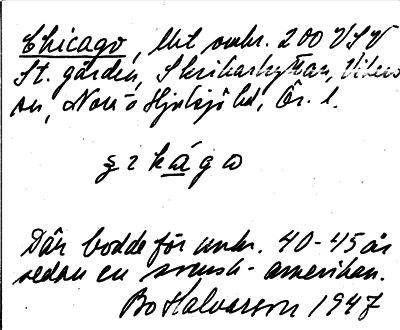 Chicago, lht omkr. 200 V S V
St. gården, Skrikarhyttan, Viker
sn, Nora o Hjulsjö hd, Ör. l.
ʂ i k á g o
Där bodde för omkr. 40-45 år
sedan en svensk-amerikan.
Bo Halvarson 1947